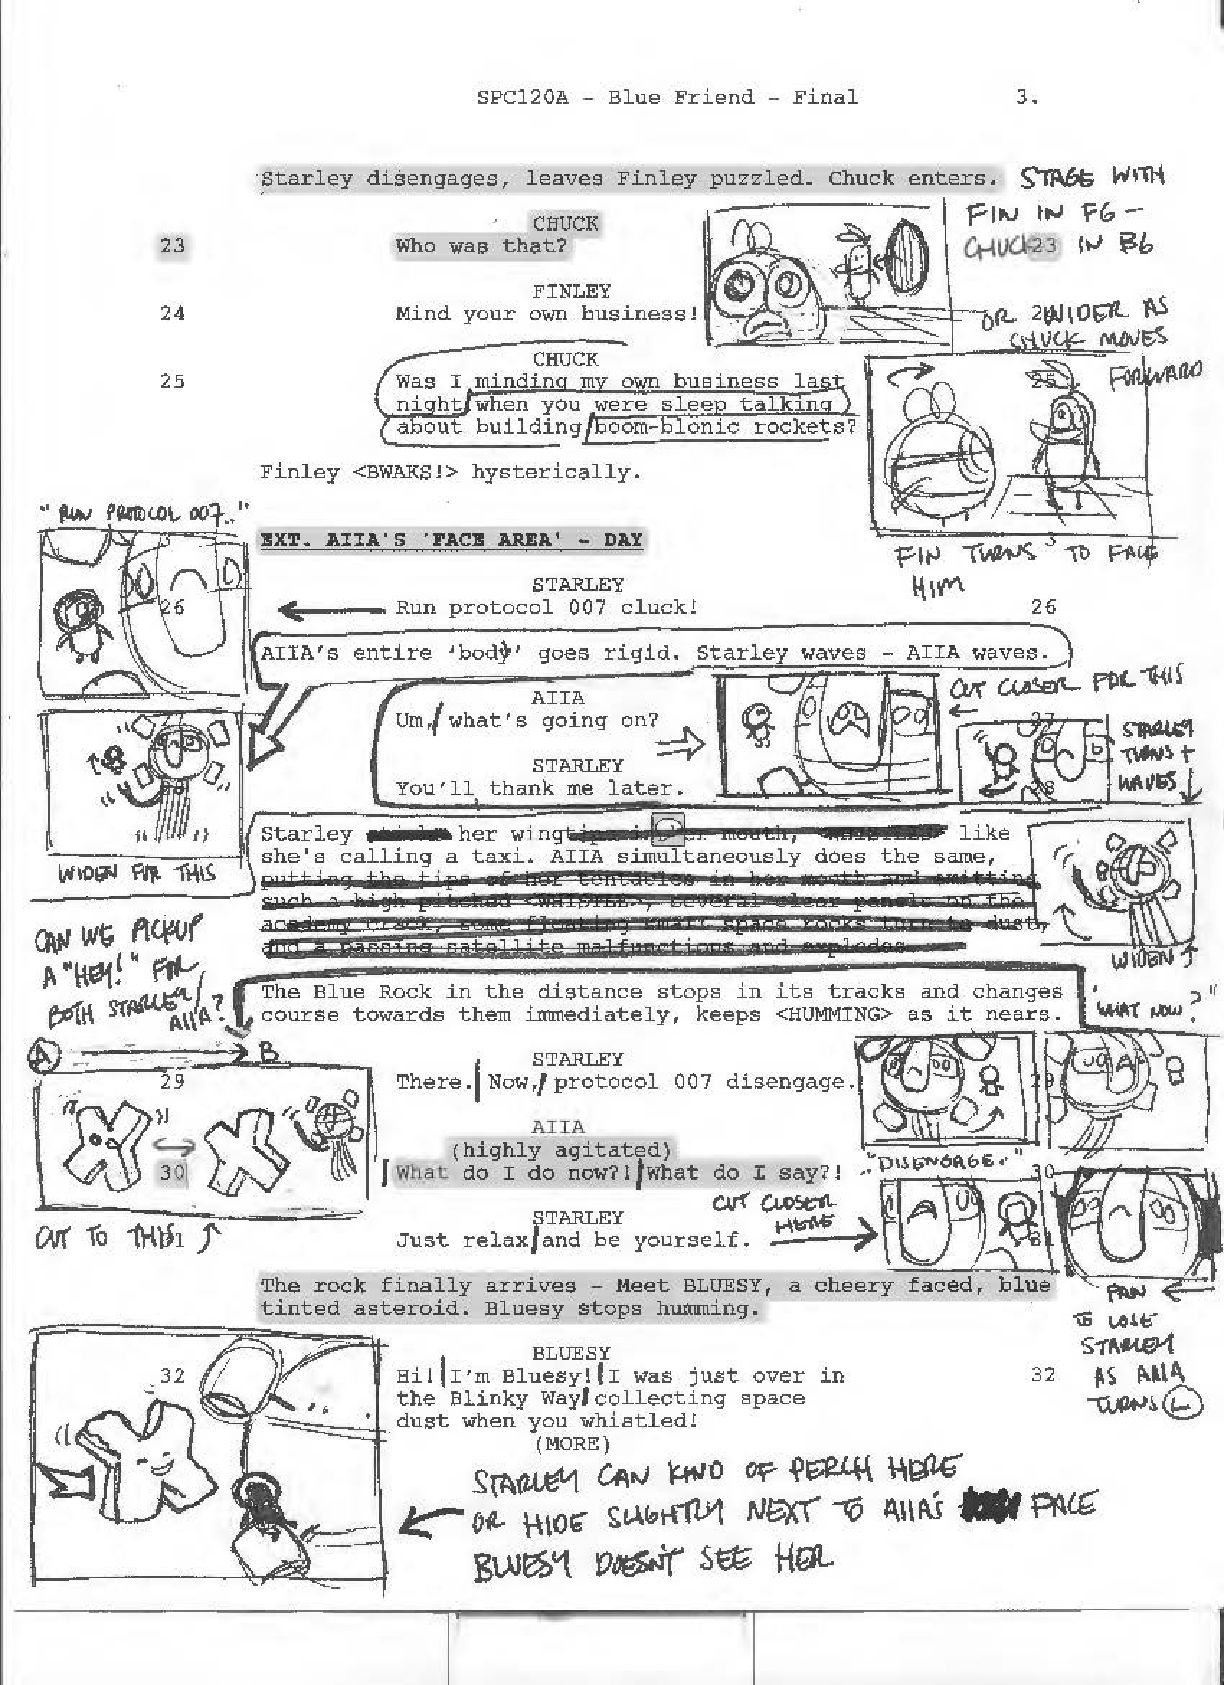 SPC120A - Blue Friend - Final 3.
Starley disengages, leaves Finley puzzled. Chuck enters.
STAGE WITH
FIN IN FG -
CHUCK IN BG
CHUCK
23 Who was that? 23
FINLEY
24 Mind your own business!
OR WIDER AS
CHUCK MOVES
FORWARD
CHUCK
25 Was I minding my own business last 25
night when you were sleep talking
about building boom-blonic rockets?
Finley <BWAKS!> hysterically.
FIN TURNS TO FACE
HIM
"RUN PROTOCOL 007.."
EXT. AIIA'S 'FACE AREA' - DAY
STARLEY
26 Run protocol 007 cluck! 26
AIIA's entire 'body' goes rigid. Starley waves - AIIA waves.
CUT CLOSER FOR THIS
AIIA
Um, what's going on? 27
STARLEY
TURNS +
WAVES
STARLEY
You'll thank me later. 28
WIDEN FOR THIS
Starley her wingtips in her mouth, like
she's calling a taxi. AIIA simultaneously does the same,
putting the tips of her tentacles in her mouth and emitting
such a high pitched <WHISTLE>, several clear panels on the
academy crack, some floating small space rocks turn to dust,
and a passing satellite malfunctions and explodes.
WIDEN
CAN WE PICKUP
A "HEY!" FOR
BOTH STARLEY/
AIIA?
The Blue Rock in the distance stops in its tracks and changes
course towards them immediately, keeps <HUMMING> as it nears.
"WHAT NOW?"
A B
STARLEY
29 There. Now, protocol 007 disengage. 29
AIIA
(highly agitated)
30 What do I do now?! What do I say?! 30
"DISENGAGE."
CUT CLOSER
HERE
CUT TO THIS
STARLEY
31 Just relax and be yourself. 31
The rock finally arrives - Meet BLUESY, a cheery faced, blue
tinted asteroid. Bluesy stops humming.
PAN
TO LOSE
STARLEY
AS AIIA
TURNS L
BLUESY
32 Hi! I'm Bluesy! I was just over in 32
the Blinky Way collecting space
dust when you whistled!
(MORE)
STARLEY CAN KIND OF PERCH HERE
OR HIDE SLIGHTLY NEXT TO AIIA'S FACE
BLUESY DOESN'T SEE HER